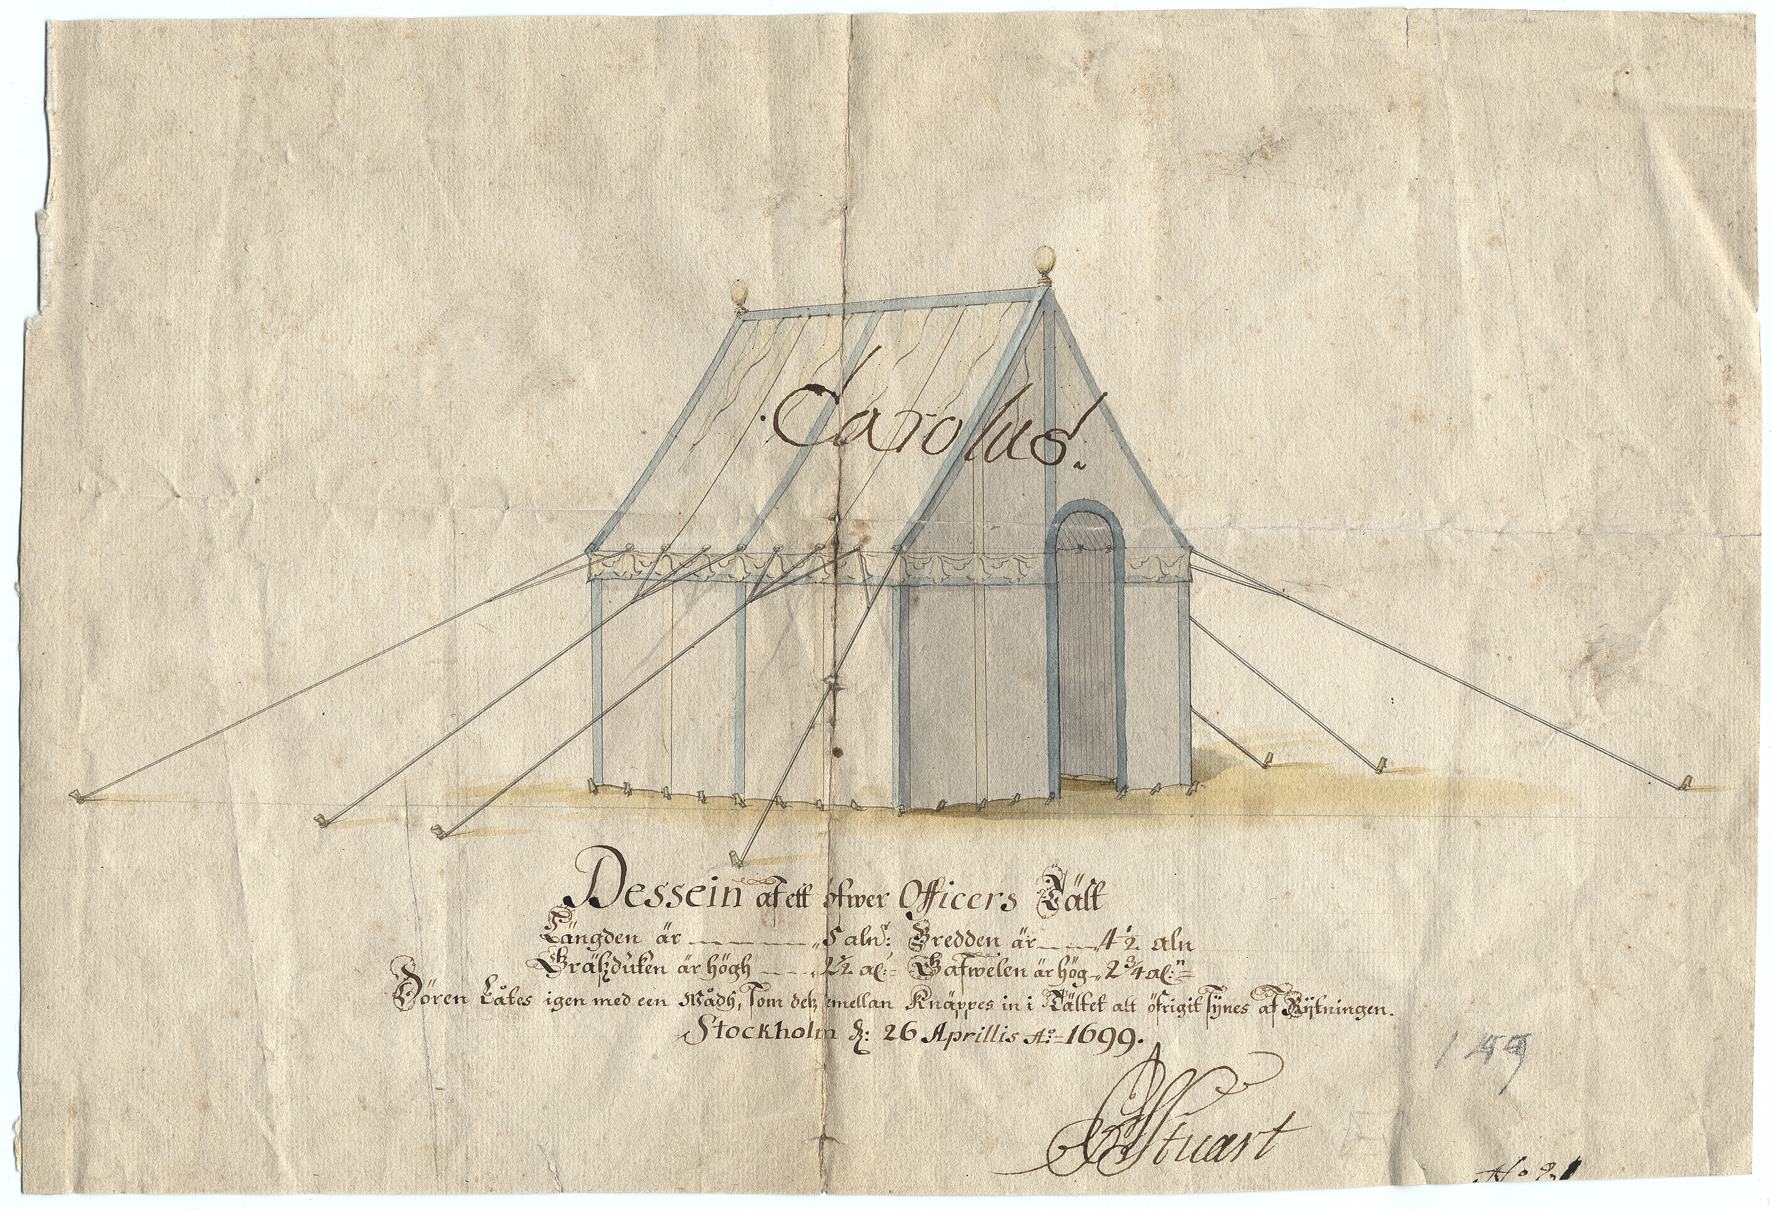 Carolus.
Dessein af ett öfwer Officers Tält
Längden är 5 aln: Bredden är 4 1/2 aln
Gräßduken är högh 2 1/2 al: Gafwelen är hög 2 3/4 al:
Dören Låtes igen med een Wådh, som deß emellan Knäppes in i Tältet alt öfrigit synes af Rijtningen.
Stockholm d: 26 Aprillis Ao: 1699.
Stuart
No 21